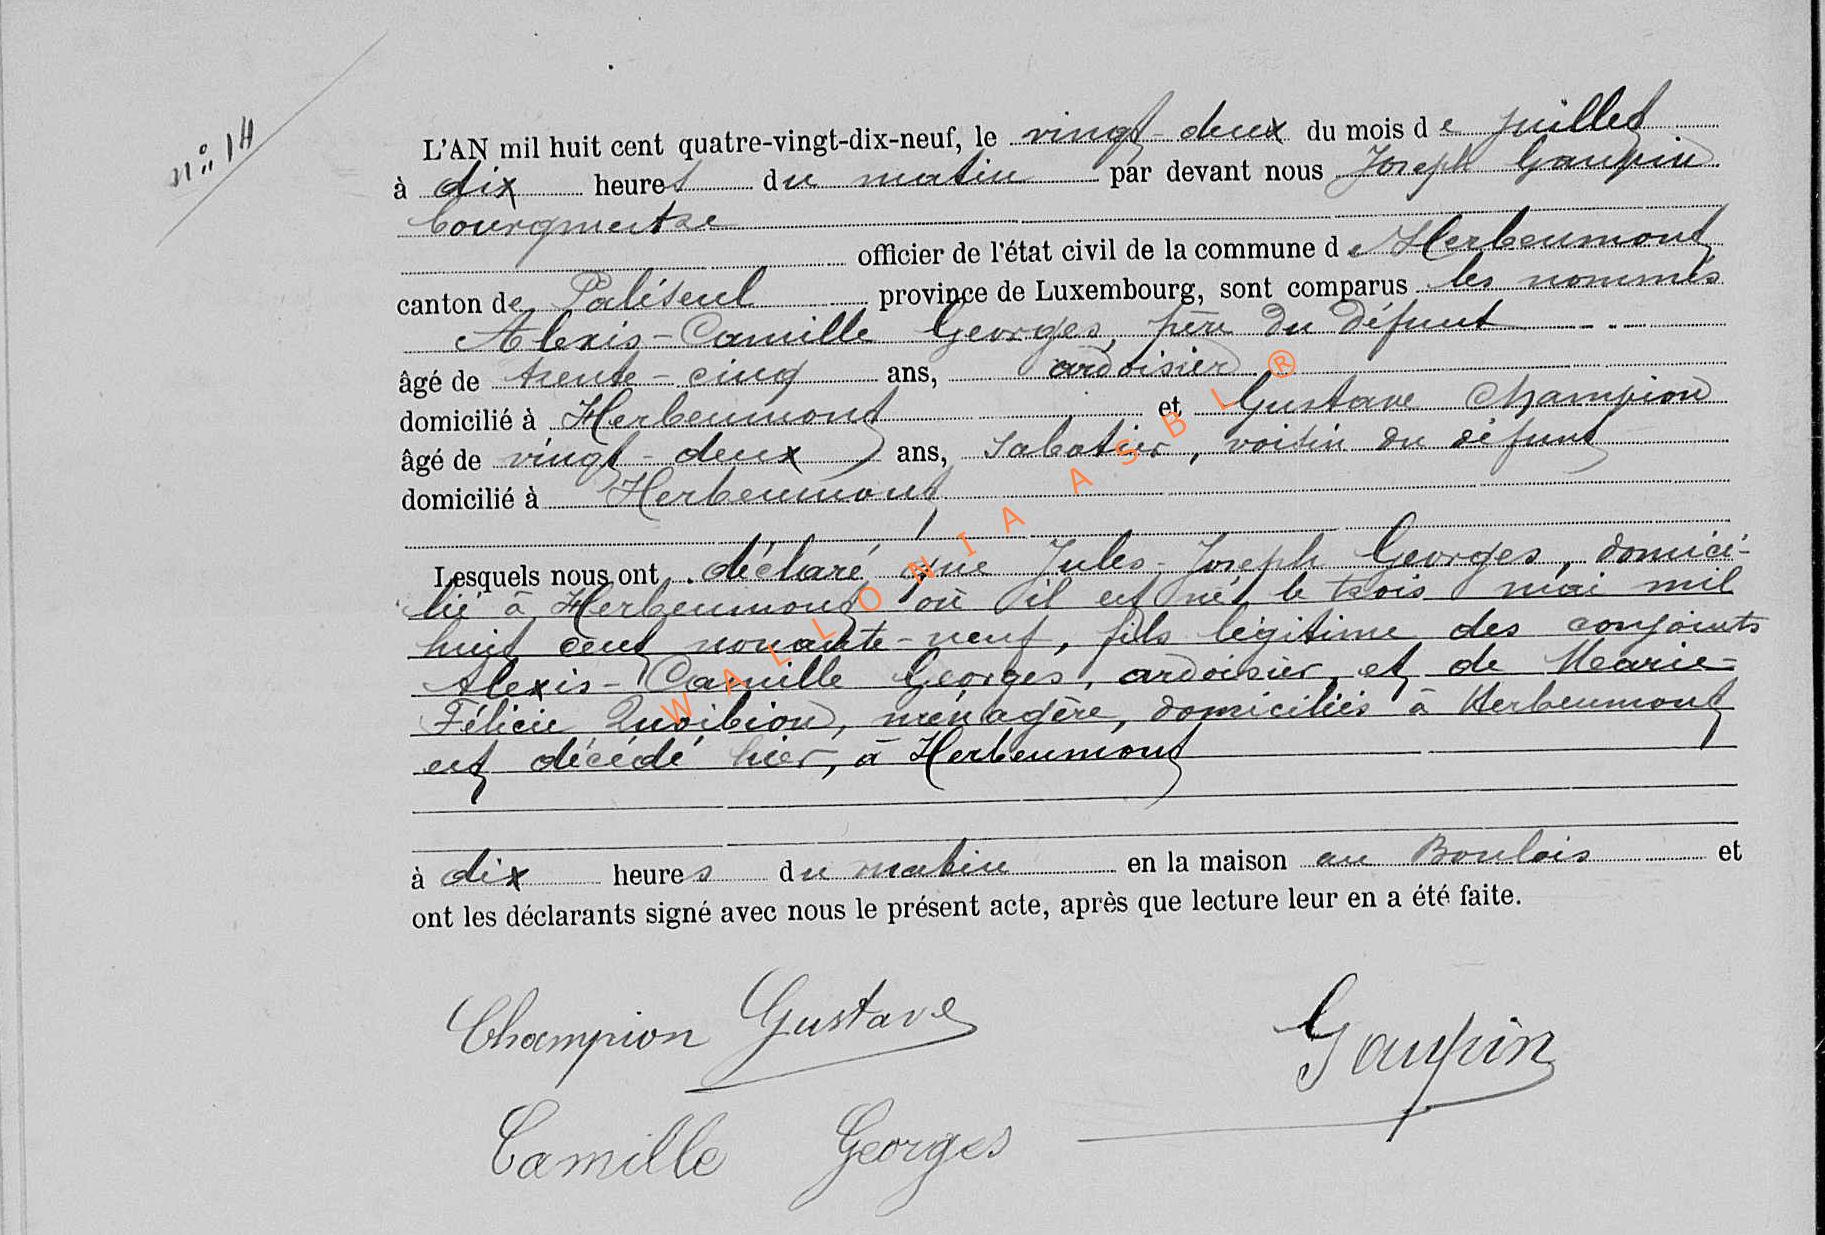 n° 14
L'AN mil huit cent quatre-vingt-dix-neuf, le vingt-deux du mois de juillet
à dix heures du matin par devant nous Joseph Gaupin
bourgmestre
officier de l'état civil de la commune de Herbeumont
canton de Paliseul province de Luxembourg, sont comparus les nommés
Alexis-Camille Georges, père du défunt
âgé de trente-cinq ans, ardoisier
domicilié à Herbeumont et Gustave Champion
âgé de vingt-deux ans, sabotier, voisin du défunt
domicilié à Herbeumont
Lesquels nous ont déclaré que Jules-Joseph Georges, domici-
lié à Herbeumont où il est né le trois mai mil
huit cent nonante-neuf, fils légitime des conjoints
Alexis-Camille Georges, ardoisier, et de Marie-
Félicie Quoibion, ménagère, domiciliés à Herbeumont
est décédé hier, à Herbeumont
à dix heures du matin en la maison au Boulois et
ont les déclarants signé avec nous le présent acte, après que lecture leur en a été faite.
Champion Gustave
Gaupin
Camille Georges
WALLONIA ASBL ®